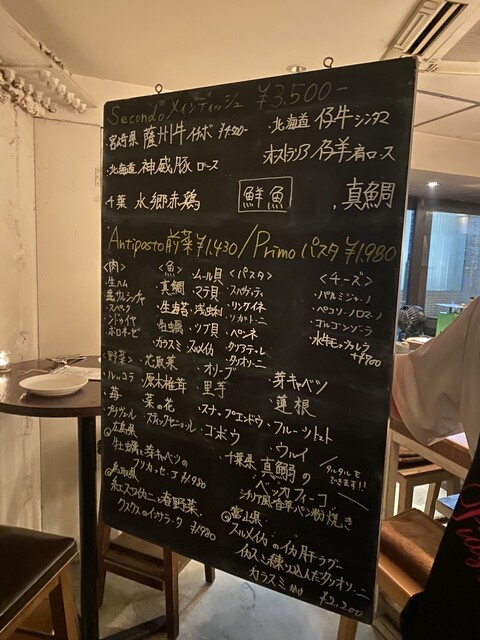 Secondo メインディッシュ ¥3,500-
宮崎県 薩州牛 イチボ ¥4500-
・北海道 仔牛シンタマ
・北海道 神威豚 ロース
オーストラリア 仔羊肩ロース
千葉 水郷赤鶏
鮮魚
・真鯛
Antipasto 前菜 ¥1,430 / Primo パスタ ¥1,980
〈肉〉
・生ハム
・生サルシッチャ
・スペック
・ンドゥイヤ
・ボロネーゼ
〈魚〉
・真鯛
・生海苔
・牡蠣
カラスミ
・ムール貝
・マテ貝
・浅蜊
・ツブ貝
スルメイカ
〈パスタ〉
・スパゲッティ
・リングイネ
・リガトーニ
・ペンネ
・タリアテーレ
・タリオリーニ
〈チーズ〉
・パルミジャーノ
・ペコリーノロマーノ
・ゴルゴンゾーラ
・水牛モッツァレラ
+¥700
〈野菜〉
・ルッコラ
・苺
・花取菜
・原木椎茸
・菜の花
・スティックセニョール
・オリーブ
・里芋
・スナップエンドウ
・ゴボウ
・芽キャベツ
・蓮根
・フルーツトマト
・ウルイ
◎広島県
牡蠣と芽キャベツの
フリカッセ ¥1,980
◎鳥取県
紅ズワイカニと春野菜
クスクスのインサラータ ¥1,980
・千葉県 真鯛の
ベッカフィーコ
シチリア風香草パン粉焼き
タルタルも
できます!!
◎富山県
スルメイカのイカ肝ラグー
イカスミ練り込んだタリオリーニ
カラスミ ¥2,200